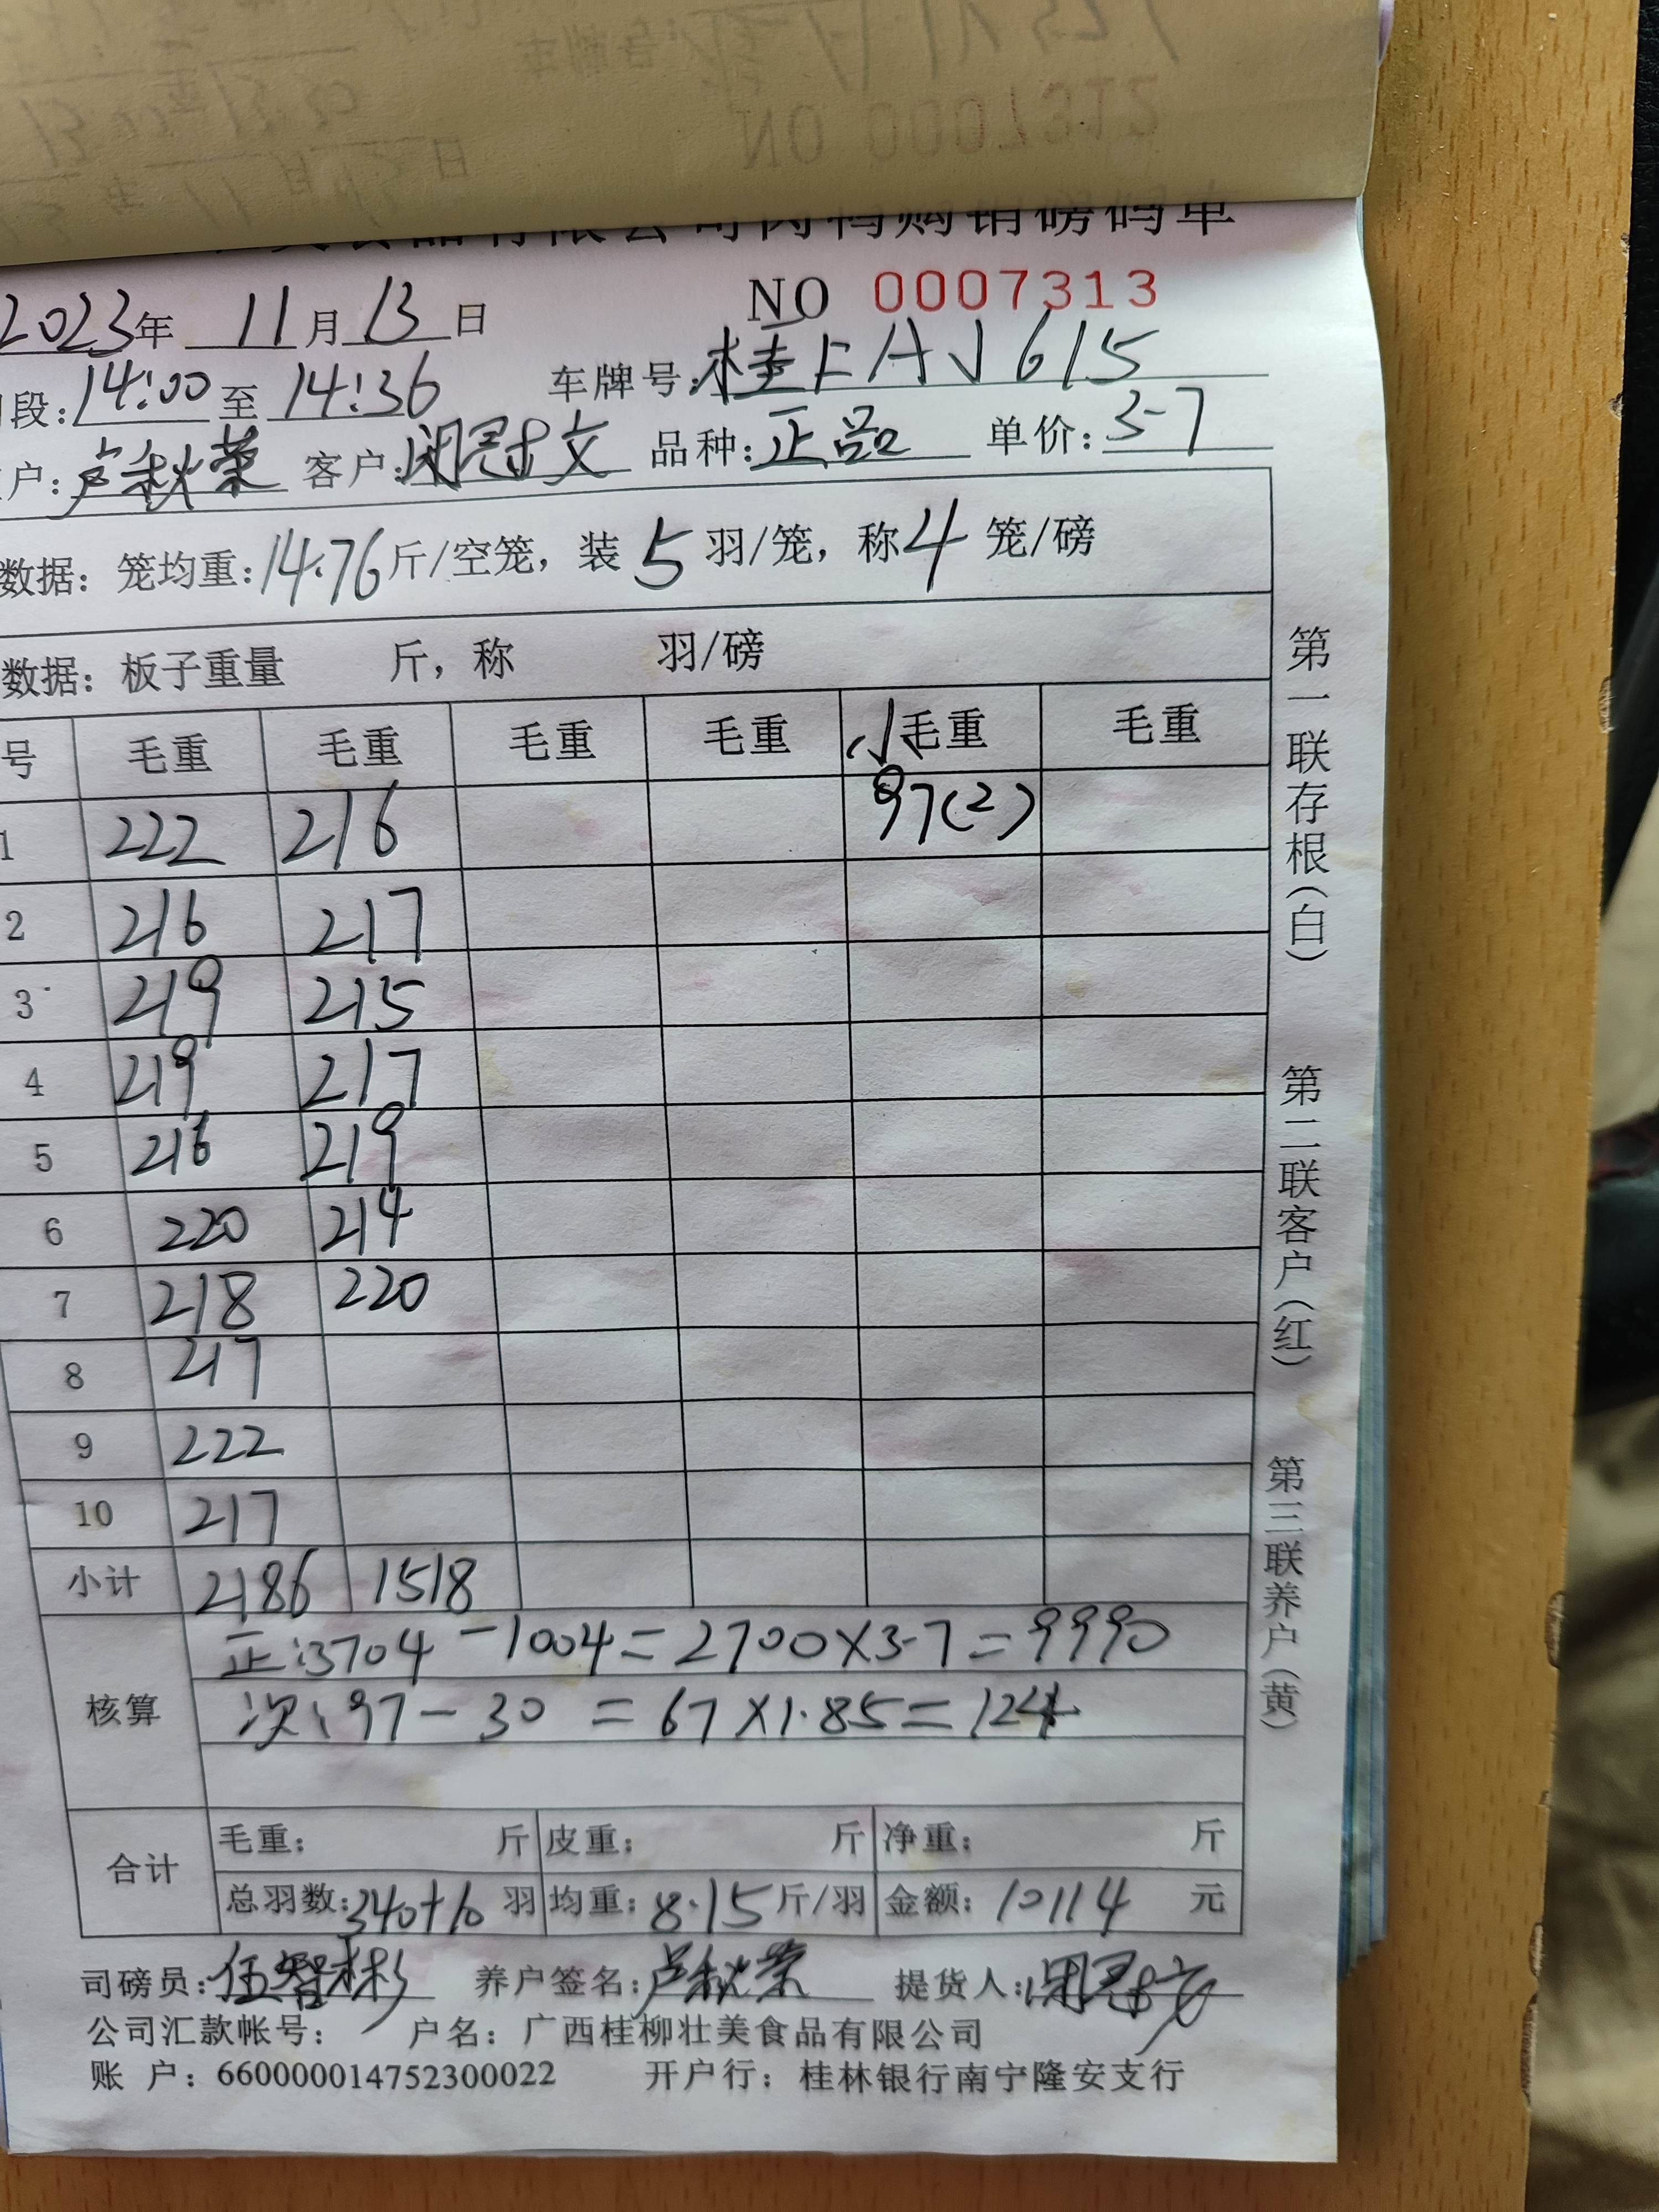 食品有限公司肉鸭购销磅码单
2023年 11月13日 NO 0007313
段:14:00至14:36 车牌号:桂FAJ615
户:卢秋荣 客户: 品种:正品 单价:3-7
数据: 笼均重:14.76斤/空笼, 装5羽/笼, 称4笼/磅
数据: 板子重量 斤, 称 羽/磅
号 毛重 毛重 毛重 毛重 小毛重 毛重
1 222 216 97(2)
2 216 217
3 219 215
4 219 217
5 216 219
6 220 214
7 218 220
8 217
9 222
10 217
小计 2186 1518
核算 正:3704-1004=2700×3-7=9990
次:97-30=67×1.85=124
合计 毛重: 斤 皮重: 斤 净重: 斤
总羽数:340+10羽 均重:8.15斤/羽 金额:10114元
司磅员:伍智彬 养户签名:卢秋荣 提货人:
公司汇款帐号: 户名: 广西桂柳壮美食品有限公司
账 户: 660000014752300022 开户行: 桂林银行南宁隆安支行
第一联存根(白) 第二联客户(红) 第三联养户(黄)